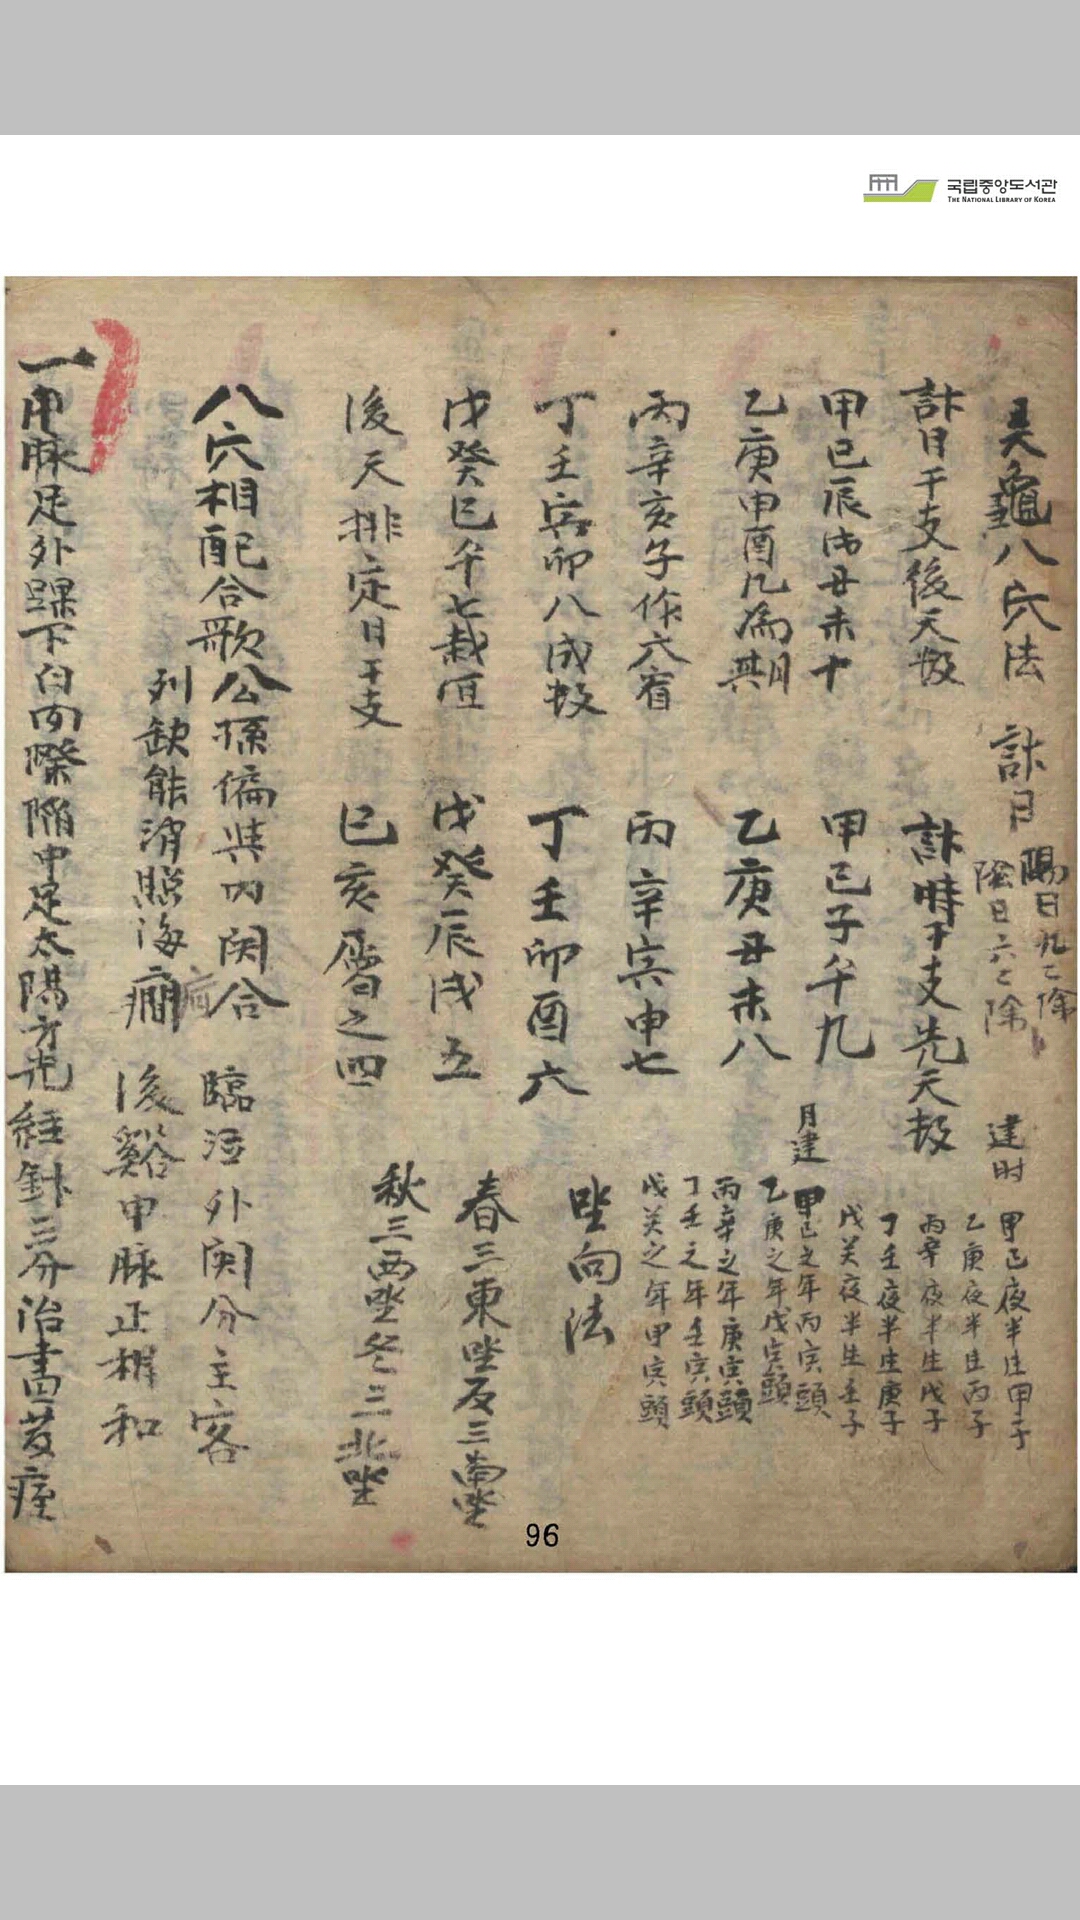 국립중앙도서관
THE NATIONAL LIBRARY OF KOREA
灵龜八穴法 計日 陽日九九除
陰日六六除
建时
計日干支後天数
計時干支先天数
甲己夜半生甲子
乙庚夜半生丙子
丙辛夜半生戊子
丁壬夜半生庚子
戊癸夜半生壬子
甲己辰戌丑未十
甲己子午九
月建
甲己之年丙寅頭
乙庚之年戊寅頭
丙辛之年庚寅頭
丁壬之年壬寅頭
戊癸之年甲寅頭
乙庚申酉九為期
乙庚丑未八
丙辛亥子作六
丙辛寅申七
丁壬寅卯八成数
丁壬卯酉六
坐向法
戊癸巳午七
戊癸辰戌五
春三東坐夏三南坐
後天排定日干支
巳亥属之四
秋三西坐冬三北坐
八穴相配合歌
公孫偏與內関合
臨泣外関分主客
列缺能消照海癎
後谿申脉正相和
一申脉足外踝下白肉際陷中足太陽方光経針三分治晝發痓
96